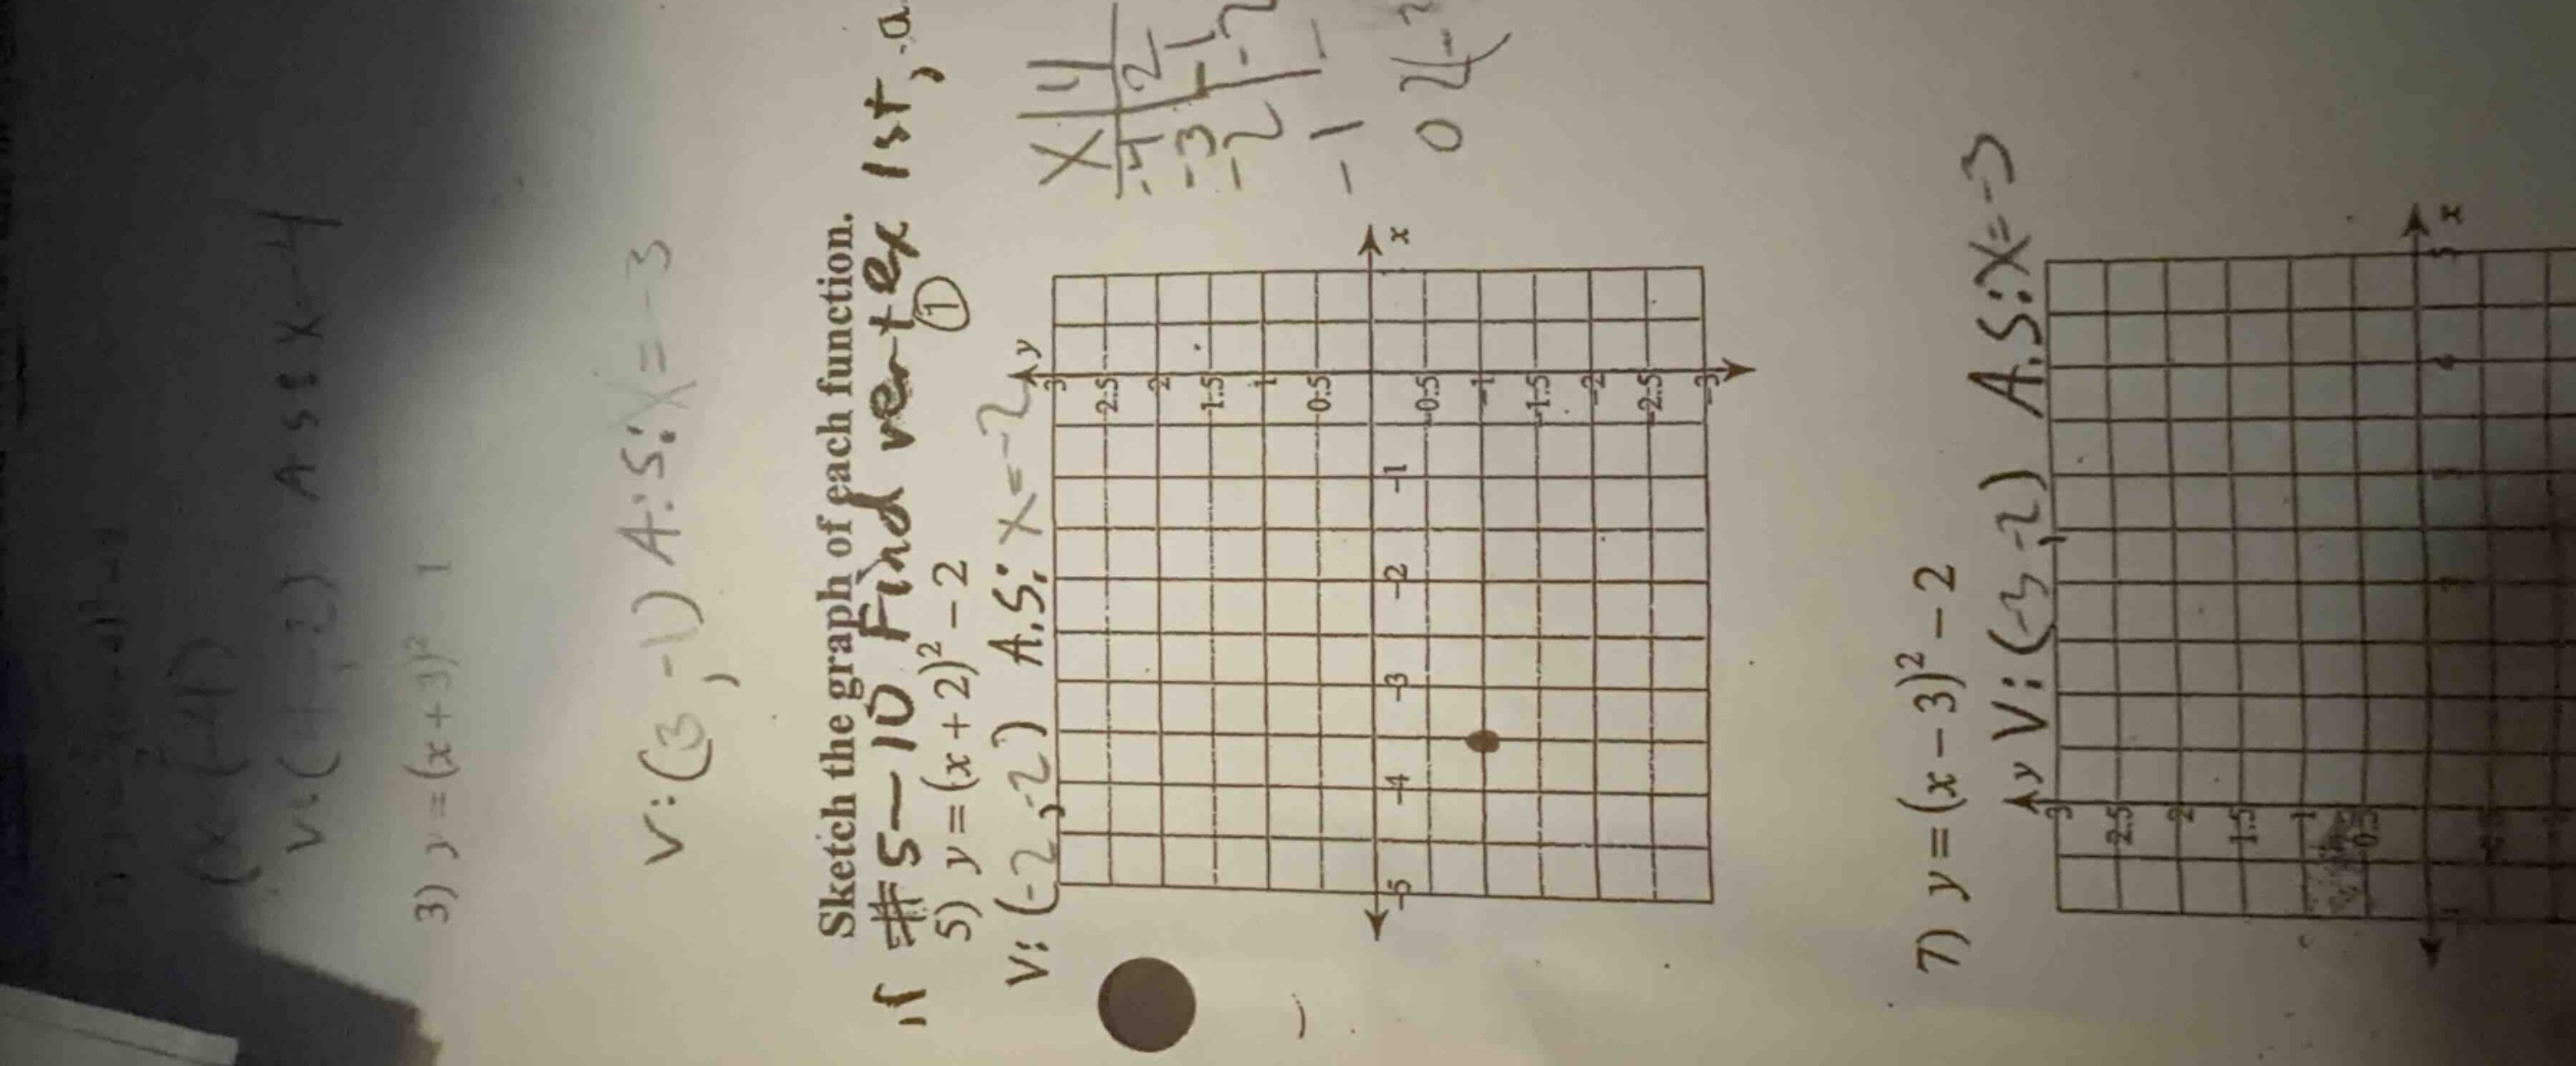 V: (4, -2) A S: X -4
3) y = (x + 3)² - 1
V: (3, -1) A.S: X = -3
Sketch the graph of each function.
#5-10 Find vertex 1st,
①
5) y = (x + 2)² - 2
V: (-2, -2) A.S: X = -2
X | y
-4 | 2
-3 | -1
-2 | -2
-1
0 2
y
3
2.5
2
1.5
1
0.5
x
-5 -4 -3 -2 -1
-0.5
-1
-1.5
-2
-2.5
-3
7) y = (x - 3)² - 2
V: (-3, -2) A.S: X = -3
y
3
2.5
2
1.5
1
0.5
x